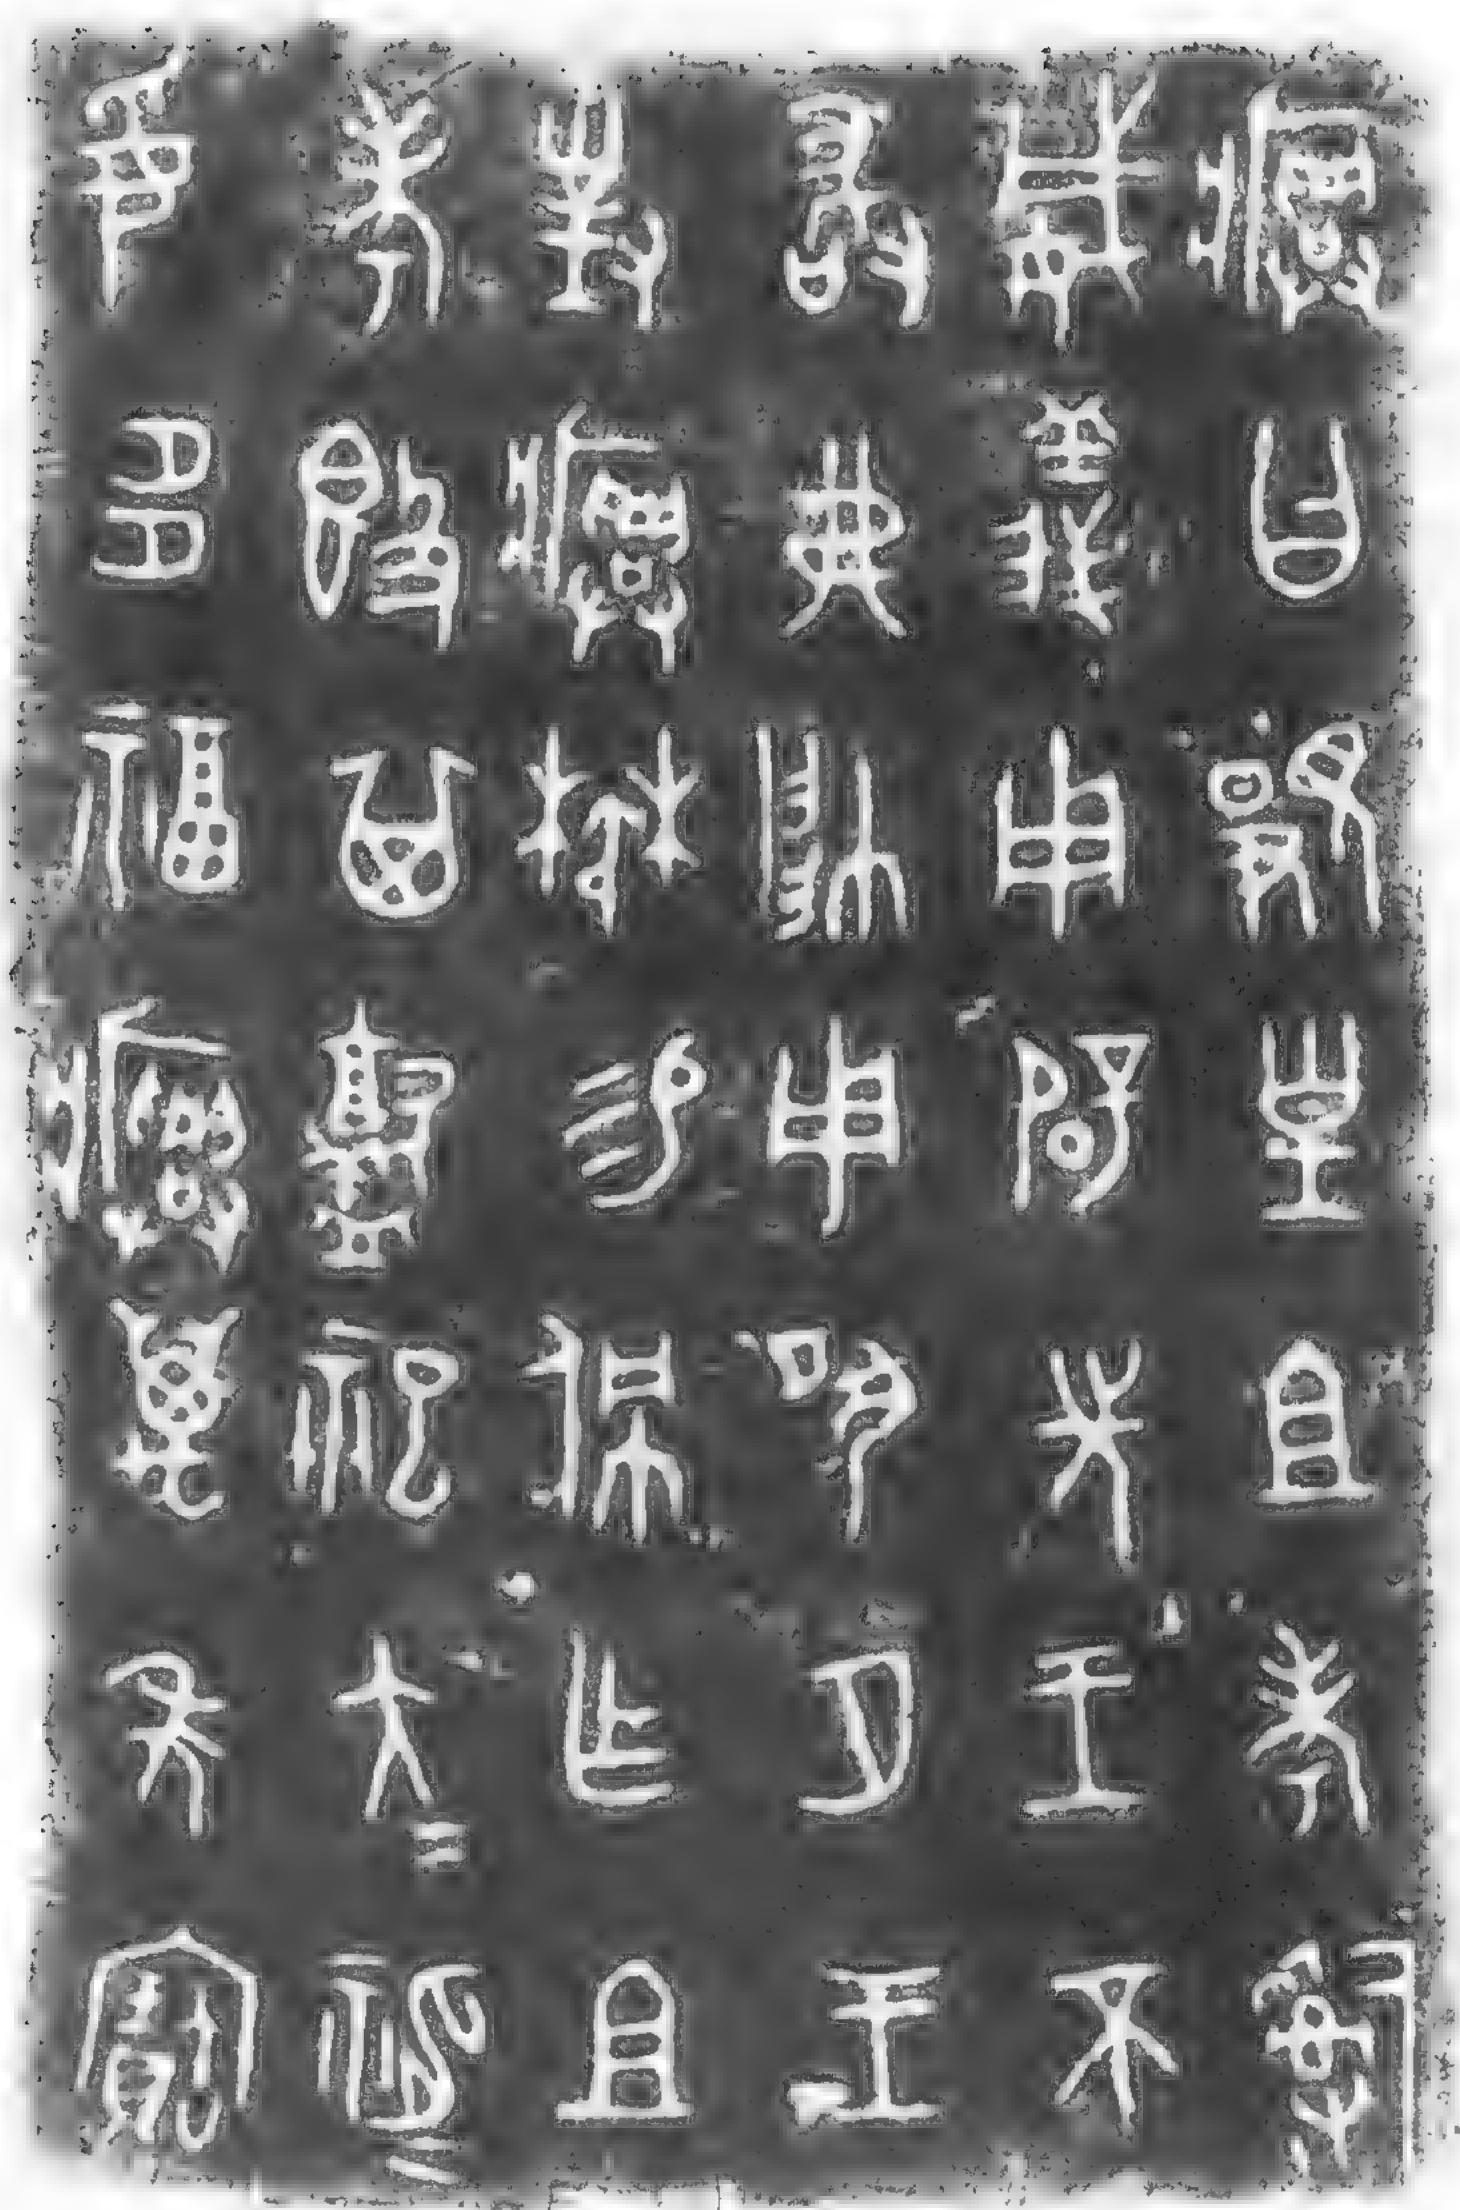 𤼈曰䫉皇且考𤔲
威義用辟先王不
敢弗帥用夙夕王
對𤼈楙易佩乍且
考𣪘其𩫖祀大=神=
妥多福𤼈萬年寶